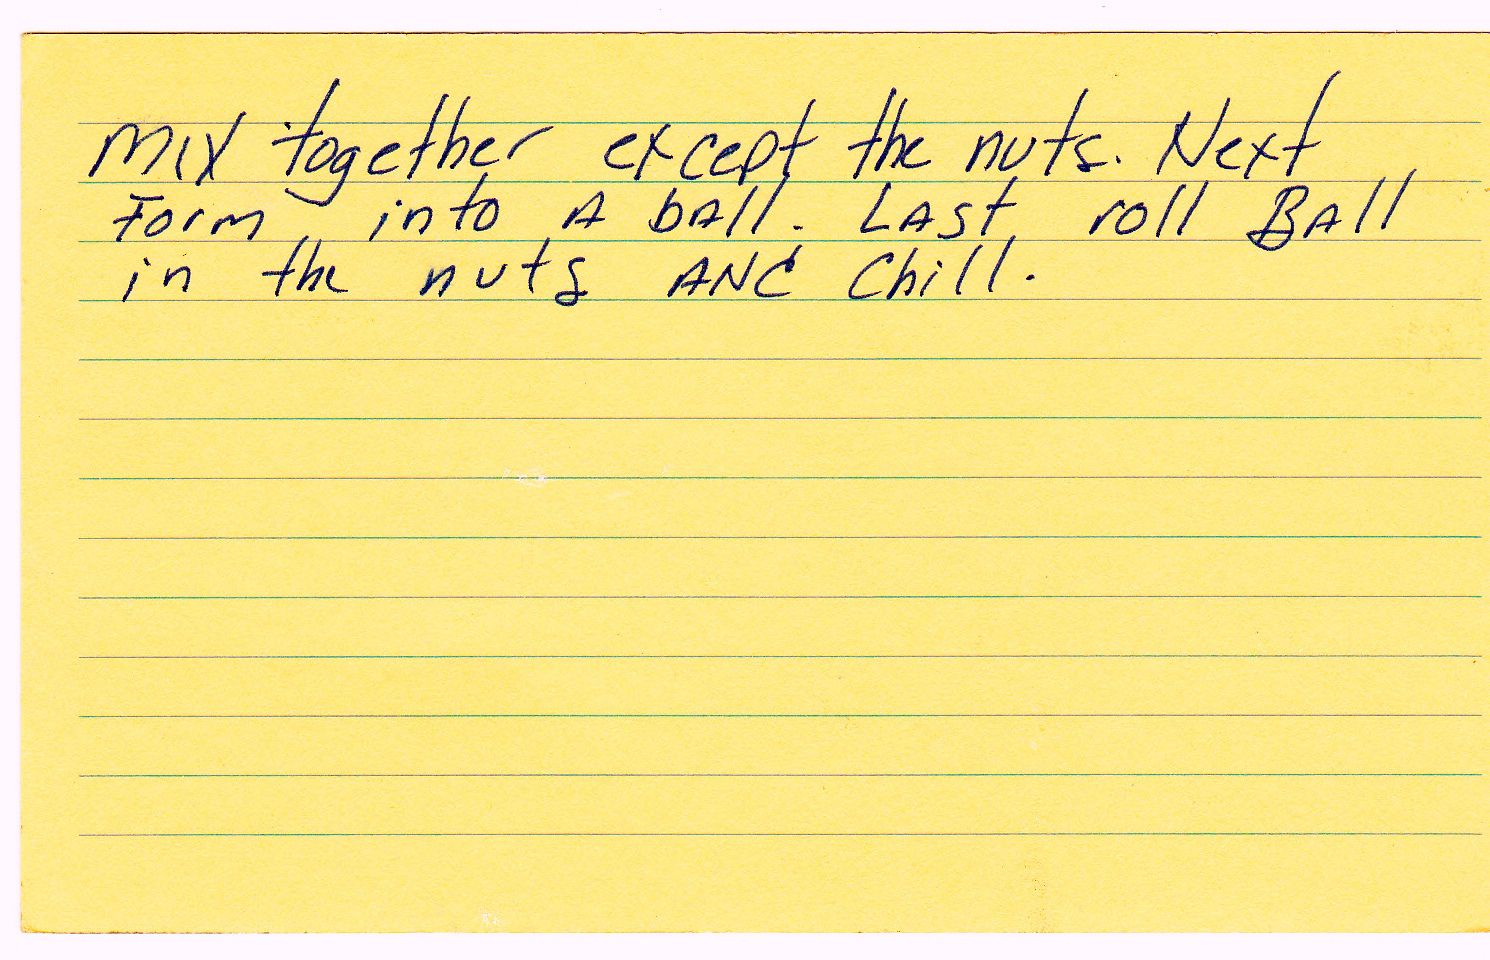 Mix together except the nuts. Next
Form into A bAll. LAst roll BAll
in the nuts ANd Chill.